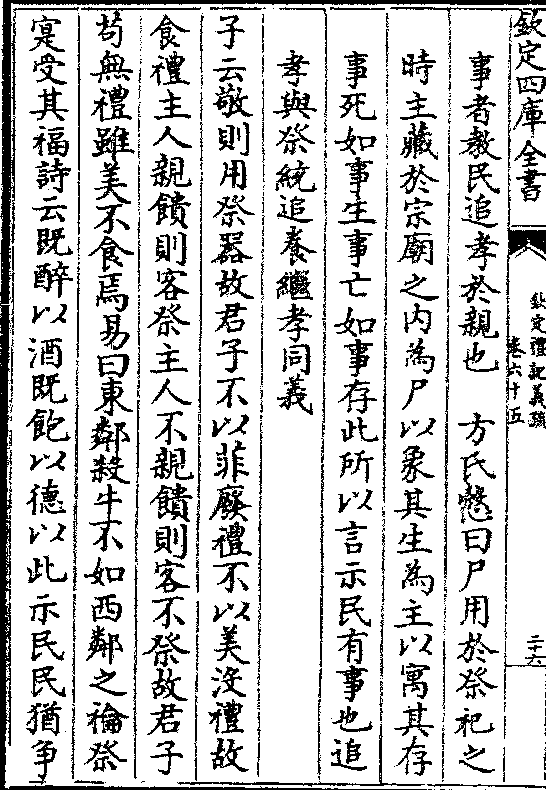 欽定四庫全書
欽定禮記義疏
卷六十五
二十六
事者教民追孝於親也　方氏慤曰尸用於祭祀之
時主藏於宗廟之内為尸以象其生為主以寓其存
事死如事生事亡如事存此所以言示民有事也追
孝與祭統追養繼孝同義
子云敬則用祭器故君子不以菲廢禮不以美没禮故
食禮主人親饋則客祭主人不親饋則客不祭故君子
苟無禮雖美不食焉易曰東鄰殺牛不如西鄰之禴祭
寔受其福詩云既醉以酒既飽以德以此示民民猶争